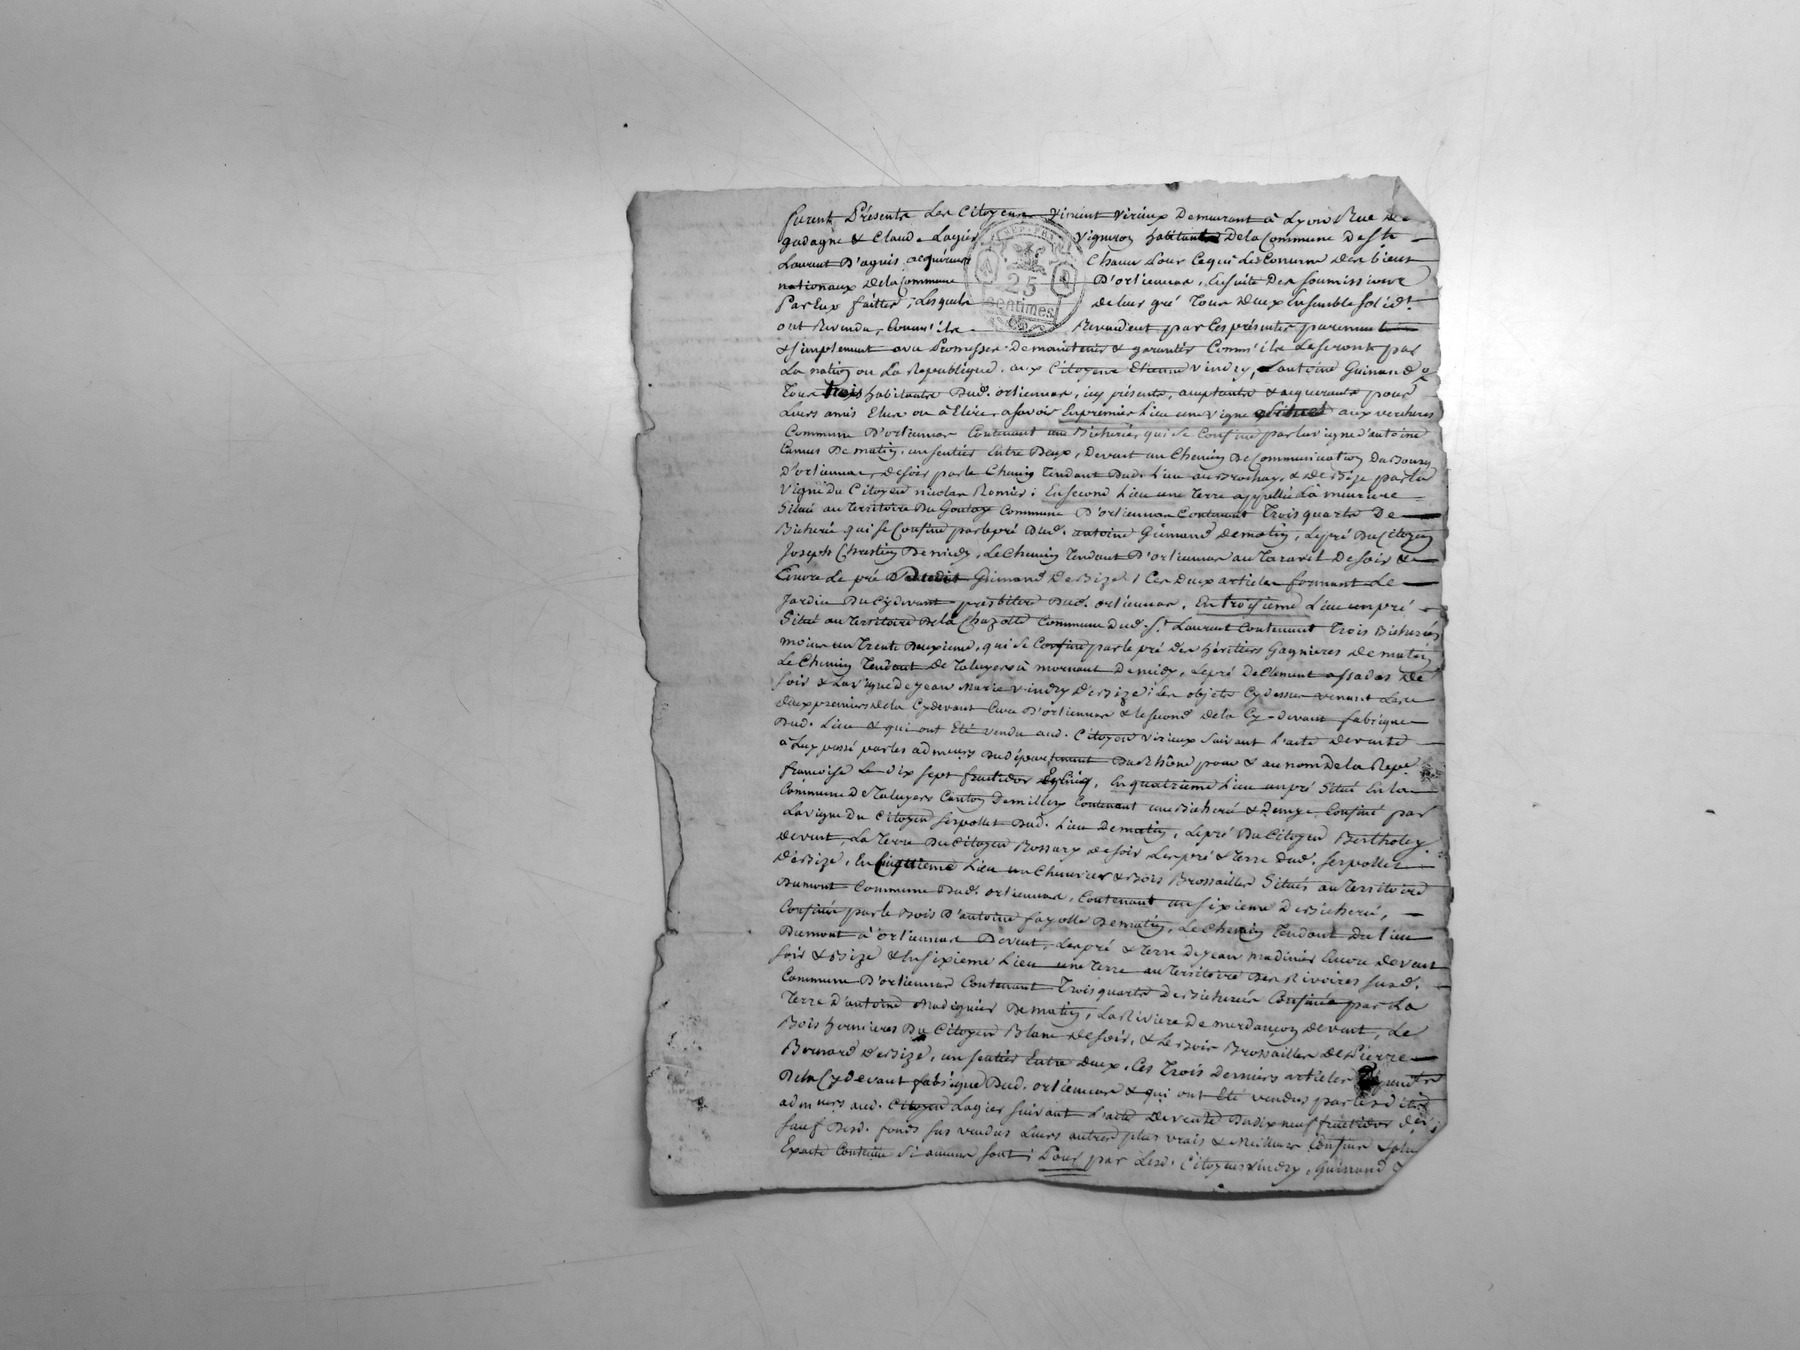 furent Présents Les Citoyens Vincent Virieux Demeurant à Lyon Rue De
gadagne & Claude Lagier Vigneron habitant De la Commune De St
Laurent D'agnis acquéreurs Chacun Pour Ce qui Les Concerne Des biens
nationaux De la Commune D'orlienas, Ensuite Des Soumissions
Par Eux faittes, Lesquels de leur gré Tous Deux Ensemble Solidt
ont Revendu, Comm'ils Revendent par Ces présentes purement
& simplement avec Promesse De maintenir & garantir Comm'ils Le Seront par
La nation ou La Republique. aux Citoyens Etienne Vindry, antoine Guinand
Tous trois habitants Dud. orlienas, icy présents, acceptants & acquerants pour
Leurs amis Elus ou à Elire, a Savoir En premier Lieu une vigne Située aux vercheres
Commune D'orlienas Contenant une Bicherée, qui Se Confine par la vigne d'antoine
Camus De matin, un Sentier Entre Deux, Devent un Chemin De Communication Du Bourg
D'orlienas, De Soir par le Chemin Tendant Dud. Lieu au Brochay, & De Bize par la
Vigne du Citoyen nicolas Romier; En Second Lieu une Terre appellée La muriere
Située au Territoire Du Goutay Commune D'orlienas Contenant Trois quarts De
Bicherée qui se Confine par le pré Dud. antoine Guinand De matin, Le pré Du Citoyen
Joseph Chrestien De midy, Le Chemin Tendant D'orlienas au Tararit De Soir &
Encore Le pré Dudit Guinand De Bize / Ces Deux articles formant Le
Jardin Du Cydevant presbitere Dud. orlienas. En troisieme Lieu un pré
Situé au Territoire De La Chazotte Commune Dud. St Laurent Contenant Trois Bicherées
moins un Trente Deuxieme, qui Se Confine par le pré Des héritiers Gagnieres De matin
Le Chemin Tendant De Taluyers à mornant De midy, Le pré De Clément assadas De
Soir & La vigne De jean Marie Vindry De Bize; Les objets Cydessus venant Les
Deux premiers De la Cydevant Cure D'orlienas & le Second De la Cy-devant fabrique
Dud. Lieu & qui ont Eté vendu aud. Citoyen Virieux Suivant L'acte De vente
à Luy passé par les admeurs Du département Du Rhône pour & au nom De la Repe
françoise Le Dix Sept fructidor, En quatrieme Lieu un pré Situé En la
Commune De Taluyers Canton De millery Contenant une Bicherée & Demye Confiné par
La vigne Du Citoyen Serpollet Dud. Lieu De matin, Le pré Du Citoyen Bertholey
De vent, La Terre Du Citoyen Rossary De Soir Les pré & Terre Dud. Serpollet
De Bize, En Cinquieme Lieu un Chenevier & Bois Brossailles Situés au Territoire
Dumont Commune Dud. orlienas, Contenant un Sixieme De Bicherée,
Confinés par le Bois D'antoine fayolle De matin, Le Chemin Tendant Du Lieu
Dumont à orlienas De vent, Les pré & Terre De jean madinier Encore De vent
Soir & Bize & En Sixieme Lieu une Terre au Territoire Des Rivoires Susd.
Commune D'orlienas Contenant Trois quarts De Bicherée Confinée par La
Terre D'antoine Madignier De matin, La Riviere De merdançon De vent, Le
Bois Du Citoyen Blanc De Soir, & Le Bois Brossailles De Pierre
Bernard De Bize, un Sentier Entre Deux. Ces Trois Derniers articles
De la Cydevant fabrique Dud. orlienas & qui ont Eté vendus par lesdits
admeurs aud. Citoyen Lagier Suivant L'acte De vente Du Dix neuf fructidor
Sauf Desd. fonds Sus vendus Leurs autres plus vrais & meilleurs Confins
Exacte Contenue Si aucuns Sont; Pour par Lesd. Citoyens Vindry, Guinand &
REP. FRA.
25
centimes